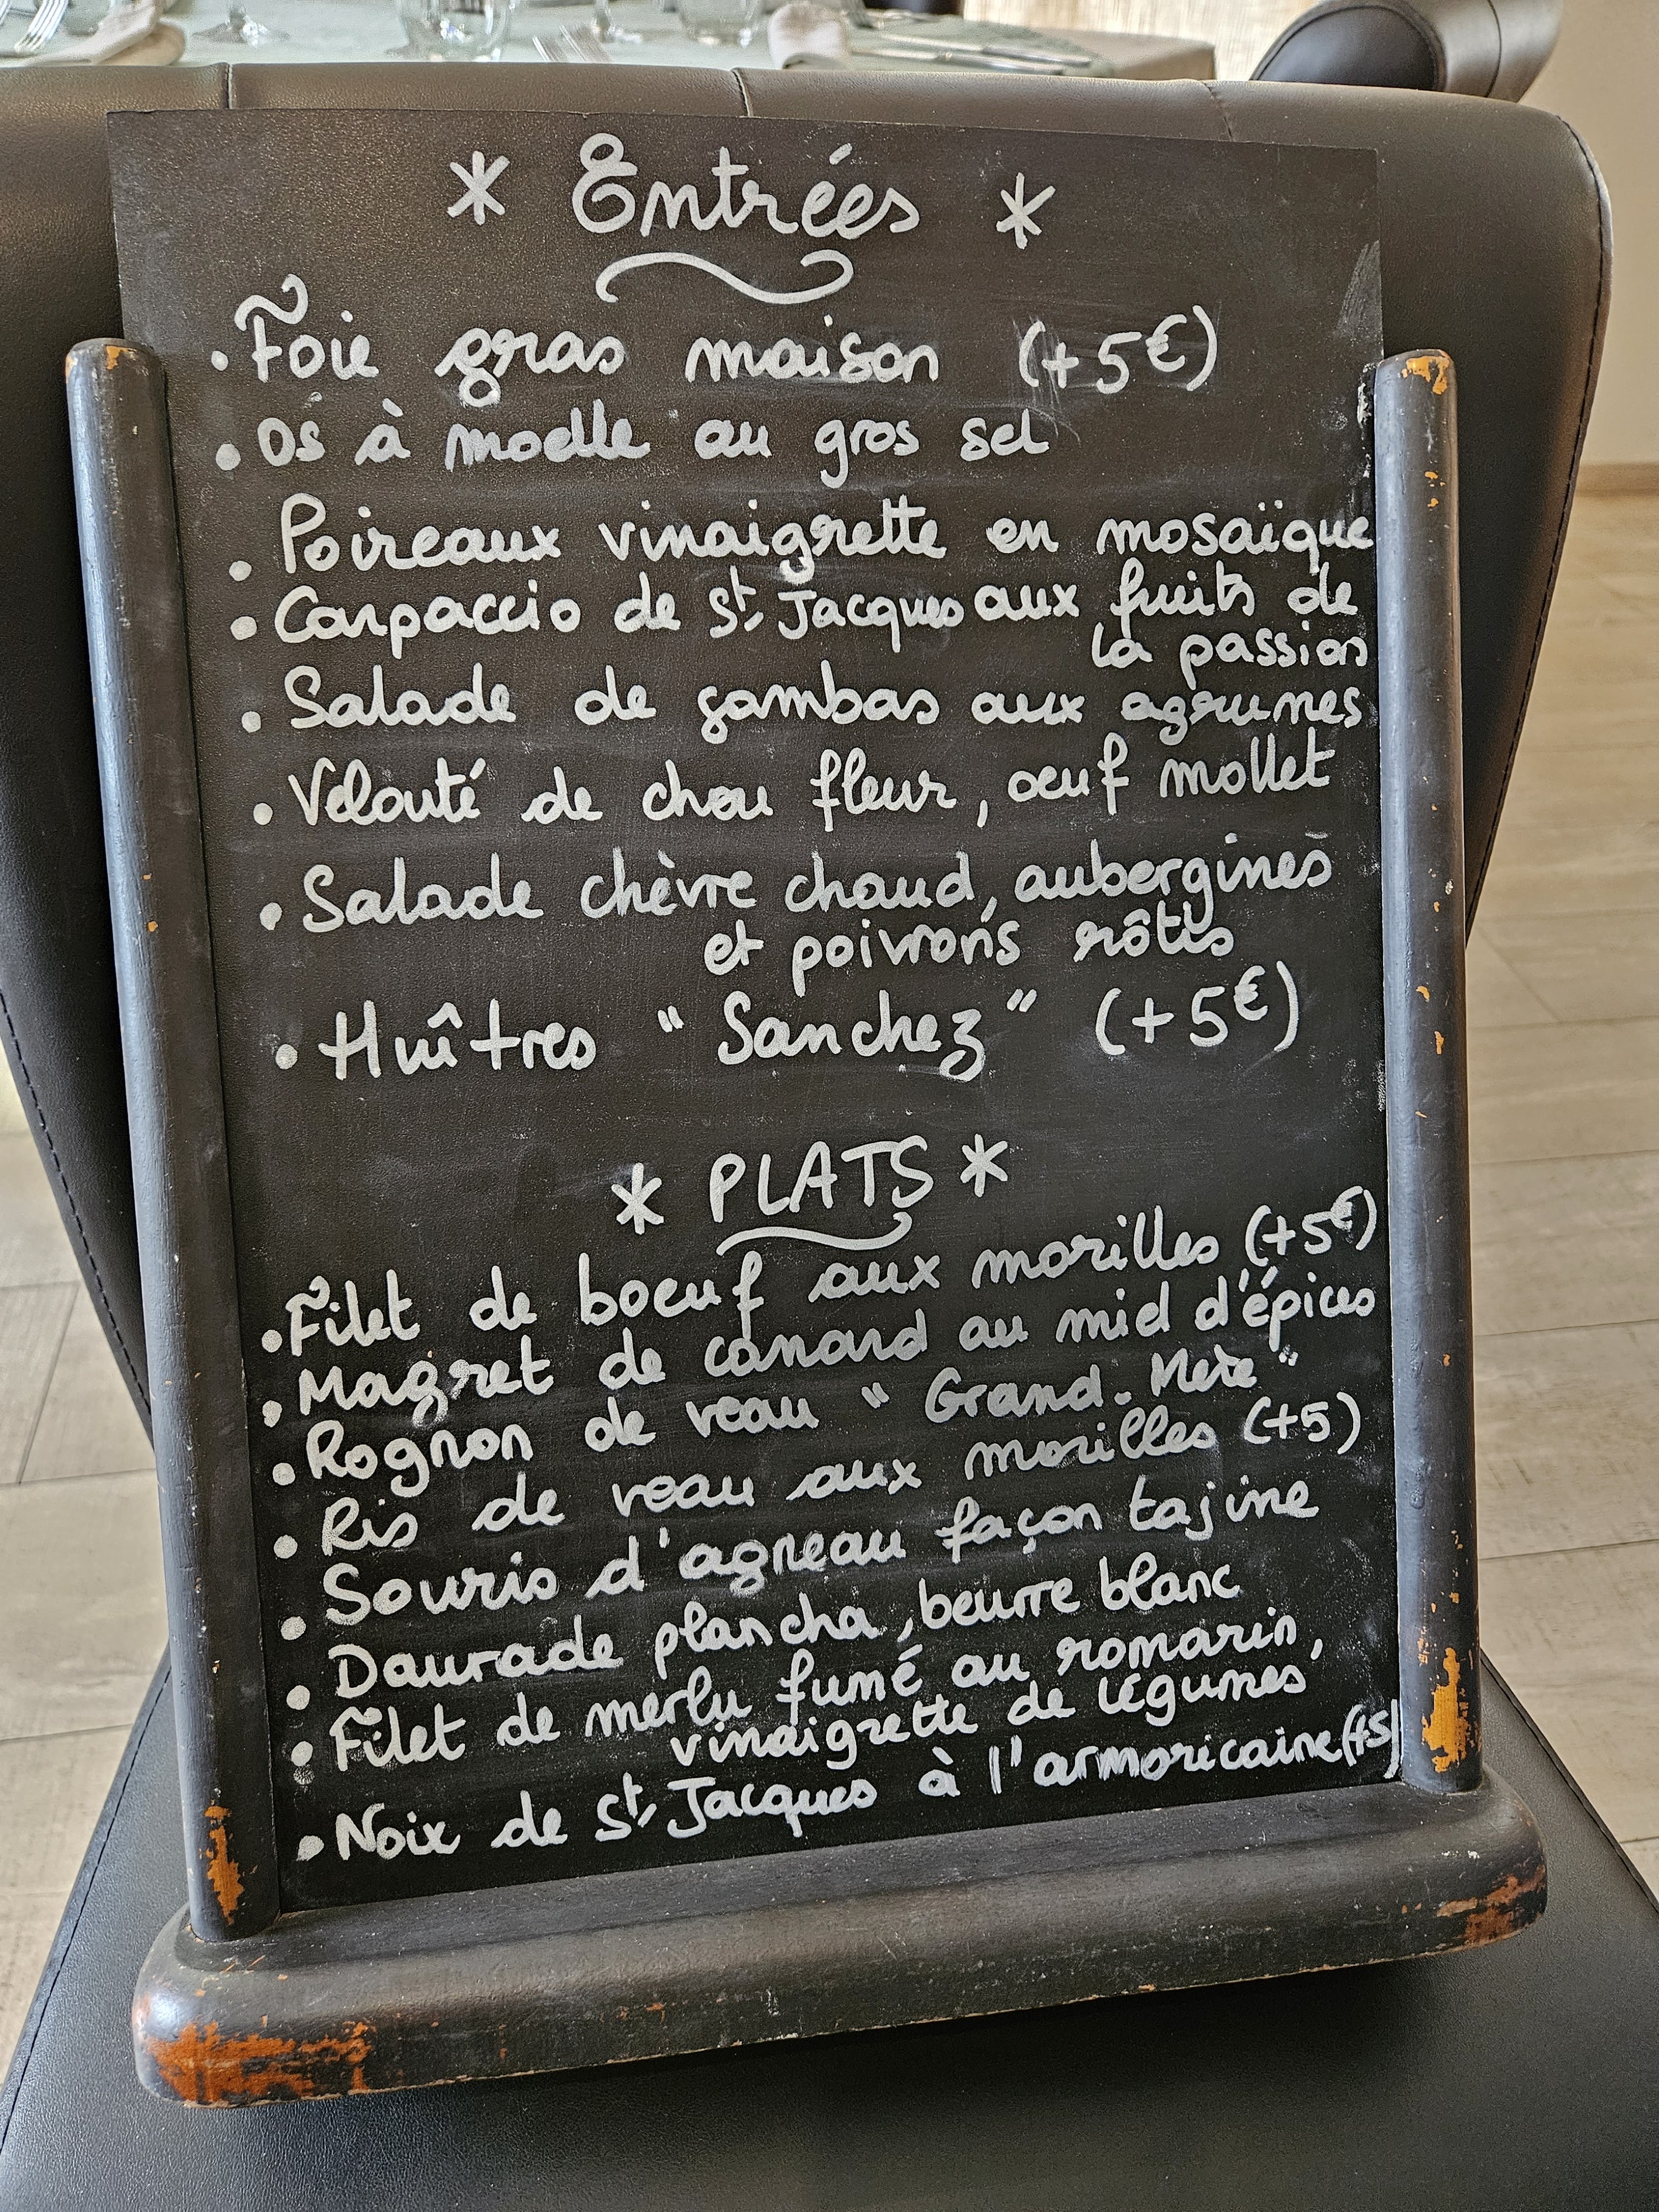 * Entrées *
• Foie gras maison (+5€)
• Os à moelle au gros sel
• Poireaux vinaigrette en mosaïque
• Carpaccio de St Jacques aux fruits de
la passion
• Salade de gambas aux agrumes
• Velouté de chou fleur, oeuf mollet
• Salade chèvre chaud, aubergines
et poivrons rôtis
• Huîtres "Sanchez" (+5€)
* PLATS *
• Filet de boeuf aux morilles (+5€)
• Magret de canard au miel d'épices
• Rognon de veau "Grand-Mère"
• Ris de veau aux morilles (+5)
• Souris d'agneau façon tajine
• Daurade plancha, beurre blanc
• Filet de merlu fumé au romarin,
vinaigrette de légumes
• Noix de St Jacques à l'armoricaine (+5)